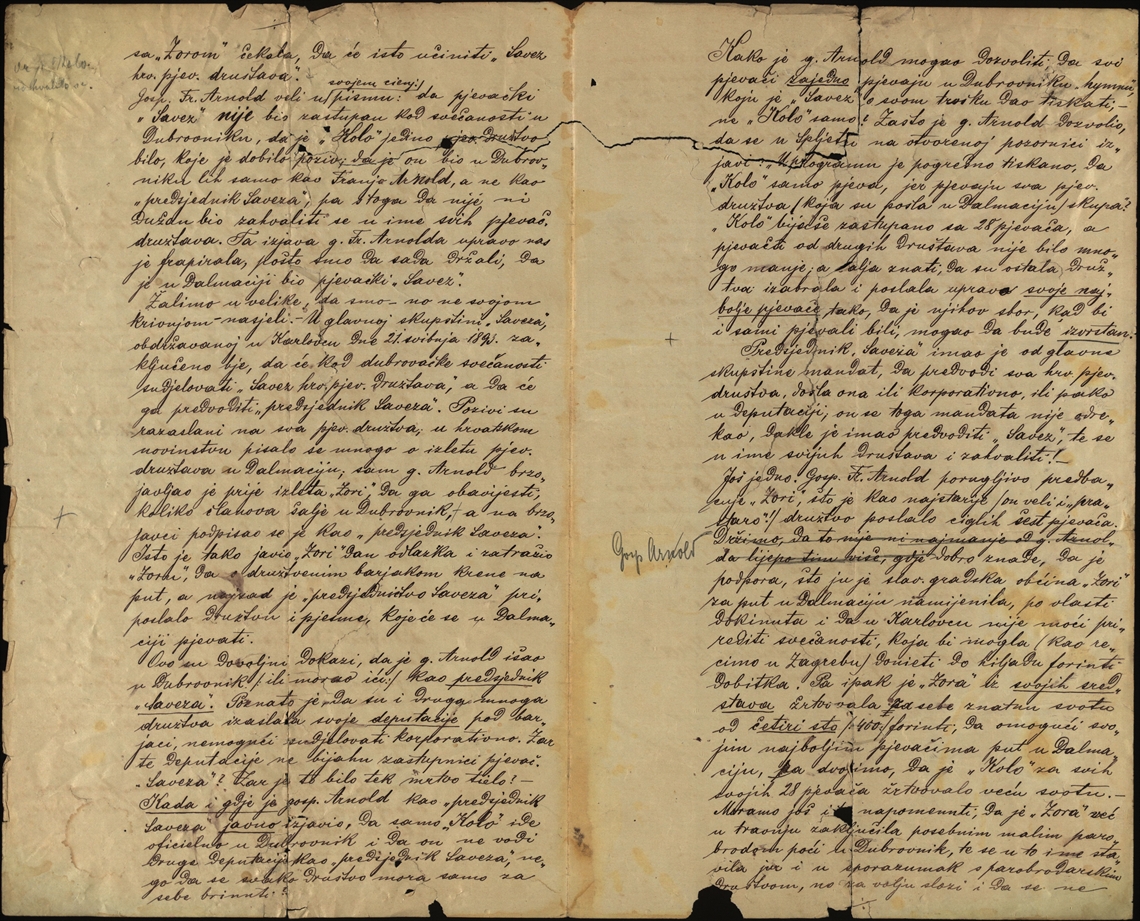 sa „Zorom" čekala, da će isto učiniti „Savez
hrv. pjev. društava".
svojem cienj.
Gosp. Fr. Arnold veli u pismu: da pjevački
„Savez" nije bio zastupan kod svečanosti u
Dubrovniku, da je „Kolo" jedino pjev. družtvo
bilo, koje je dobilo poziv; da je on bio u Dubrov-
niku lih samo kao Franjo Arnold, a ne kao
„predsjednik Saveza", pa stoga da nije ni
dužan bio zahvaliti se u ime svih pjevač.
družtava. Ta izjava g. Fr. Arnolda upravo nas
je frapirala, pošto smo da sada držali, da
je u Dalmaciji bio pjevački „Savez".
Žalimo u velike, da smo – no ne svojom
krivnjom – nasjeli. – U glavnoj skupštini „Saveza",
obdržavanoj u Karlovcu dne 21. svibnja 189. za-
ključeno bje, da će kod dubrovačke svečanosti
sudjelovati „Savez hrv. pjev. družtava" a da će
ga predvoditi „predsjednik Saveza". Pozivi su
razaslani na sva pjev. družtva; u hrvatskom
novinstvu pisalo se mnogo o izletu pjev.
družtava u Dalmaciju; sam g. Arnold brzo-
javljao je prije izleta „Zori" da ga obaviesti,
koliko članova šalje u Dubrovnik, a na brzo-
javci podpisao se je kao „predsjednik Saveza".
Isto je tako javio „Zori" dan odlazka i zatražio
„Zoru", da s družtvenim barjakom krene na
put, a najzad je „predsjedničtvo Saveza" pri-
poslalo družtvu i pjesme, koje će se u Dalma-
ciji pjevati.
Ovo su dovoljni dokazi, da je g. Arnold išao
u Dubrovnik /: ili morao ići :/ kao predsjednik
„Saveza". Poznato je, da su i druga mnoga
družtva izaslala svoje deputacije pod bar-
jaci, nemogući sudjelovati korporativno. Zar
te deputacije ne bijahu zastupnici pjevač.
„Saveza"? Zar je to bilo tek mrtvo tielo? –
Kada i gdje je gosp. Arnold kao „predsjednik
Saveza" javno izjavio, da samo „Kolo" ide
oficielno u Dubrovnik i da on ne vodi
druge deputacije kao „predsjednik Saveza", ne-
go da se svako družtvo mora samo za
sebe brinuti?
Kako je g. Arnold mogao dozvoliti, da svi
pjevači zajedno pjevaju u Dubrovniku hymnu,
koju je „Savez" o svom trošku dao tiskati, –
ne „Kolo" samo? Zašto je g. Arnold dozvolio,
da se u Spljetu na otvorenoj pozornici iz-
javi: „U programu je pogrešno tiskano, da
„Kolo" samo pjeva, jer pjevaju sva pjev.
družtva /: koja su pošla u Dalmaciju :/ skupa"?
„Kolo" bijaše zastupano sa 28 pjevača, a
pjevača od drugih družtava nije bilo mno-
go manje; a valja znati, da su ostala druž-
tva izabrala i poslala upravo svoje naj-
bolje pjevače tako, da je njihov sbor, kad bi
i sami pjevali bili, mogao da bude izvrstan.
Predsjednik „Saveza" imao je od glavne
skupštine mandat, da predvodi sva hrv. pjev.
društva, došla ona ili korporativno, ili pako
u deputaciji; on se toga mandata nije odre-
kao, dakle je imao predvoditi „Savez", te se
u ime svijuh družtava i zahvaliti! –
Još jedno: Gosp. Fr. Arnold porugljivo predba-
cuje „Zori", što je kao najstarije /: on veli i „pra-
staro":/ družtvo poslalo ciglih šest pjevača.
Držimo, da to nije ni najmanje od g. Arnol-
da liepo tim više, gdje dobro znade, da je
Gosp. Arnold
podpora, što ju je slav. gradska obćina „Zori"
za put u Dalmaciju namijenila, po vlasti
dokinuta i da u Karlovcu nije moći pri-
rediti svečanosti, koja bi mogla /: kao re-
cimo u Zagrebu :/ donieti do hiljadu forinti
dobitka. Pa ipak je „Zora" iz svojih sred-
stava žrtvovala za sebe znatnu svotu
od četiri sto /: 400 :/ forinti, da omogući svo-
jim najboljim pjevačima put u Dalma-
ciju, pa dvojimo, da je „Kolo" za svih
svojih 28 pjevača žrtvovalo veću svotu. –
Moramo još i napomenuti, da je „Zora" već
u travnju zaključila posebnim malim paro-
brodom poći u Dubrovnik, te se u to ime sta-
vila jur i u sporazumak s parobrodarskim
družtvom, no za volju slozi i da se ne